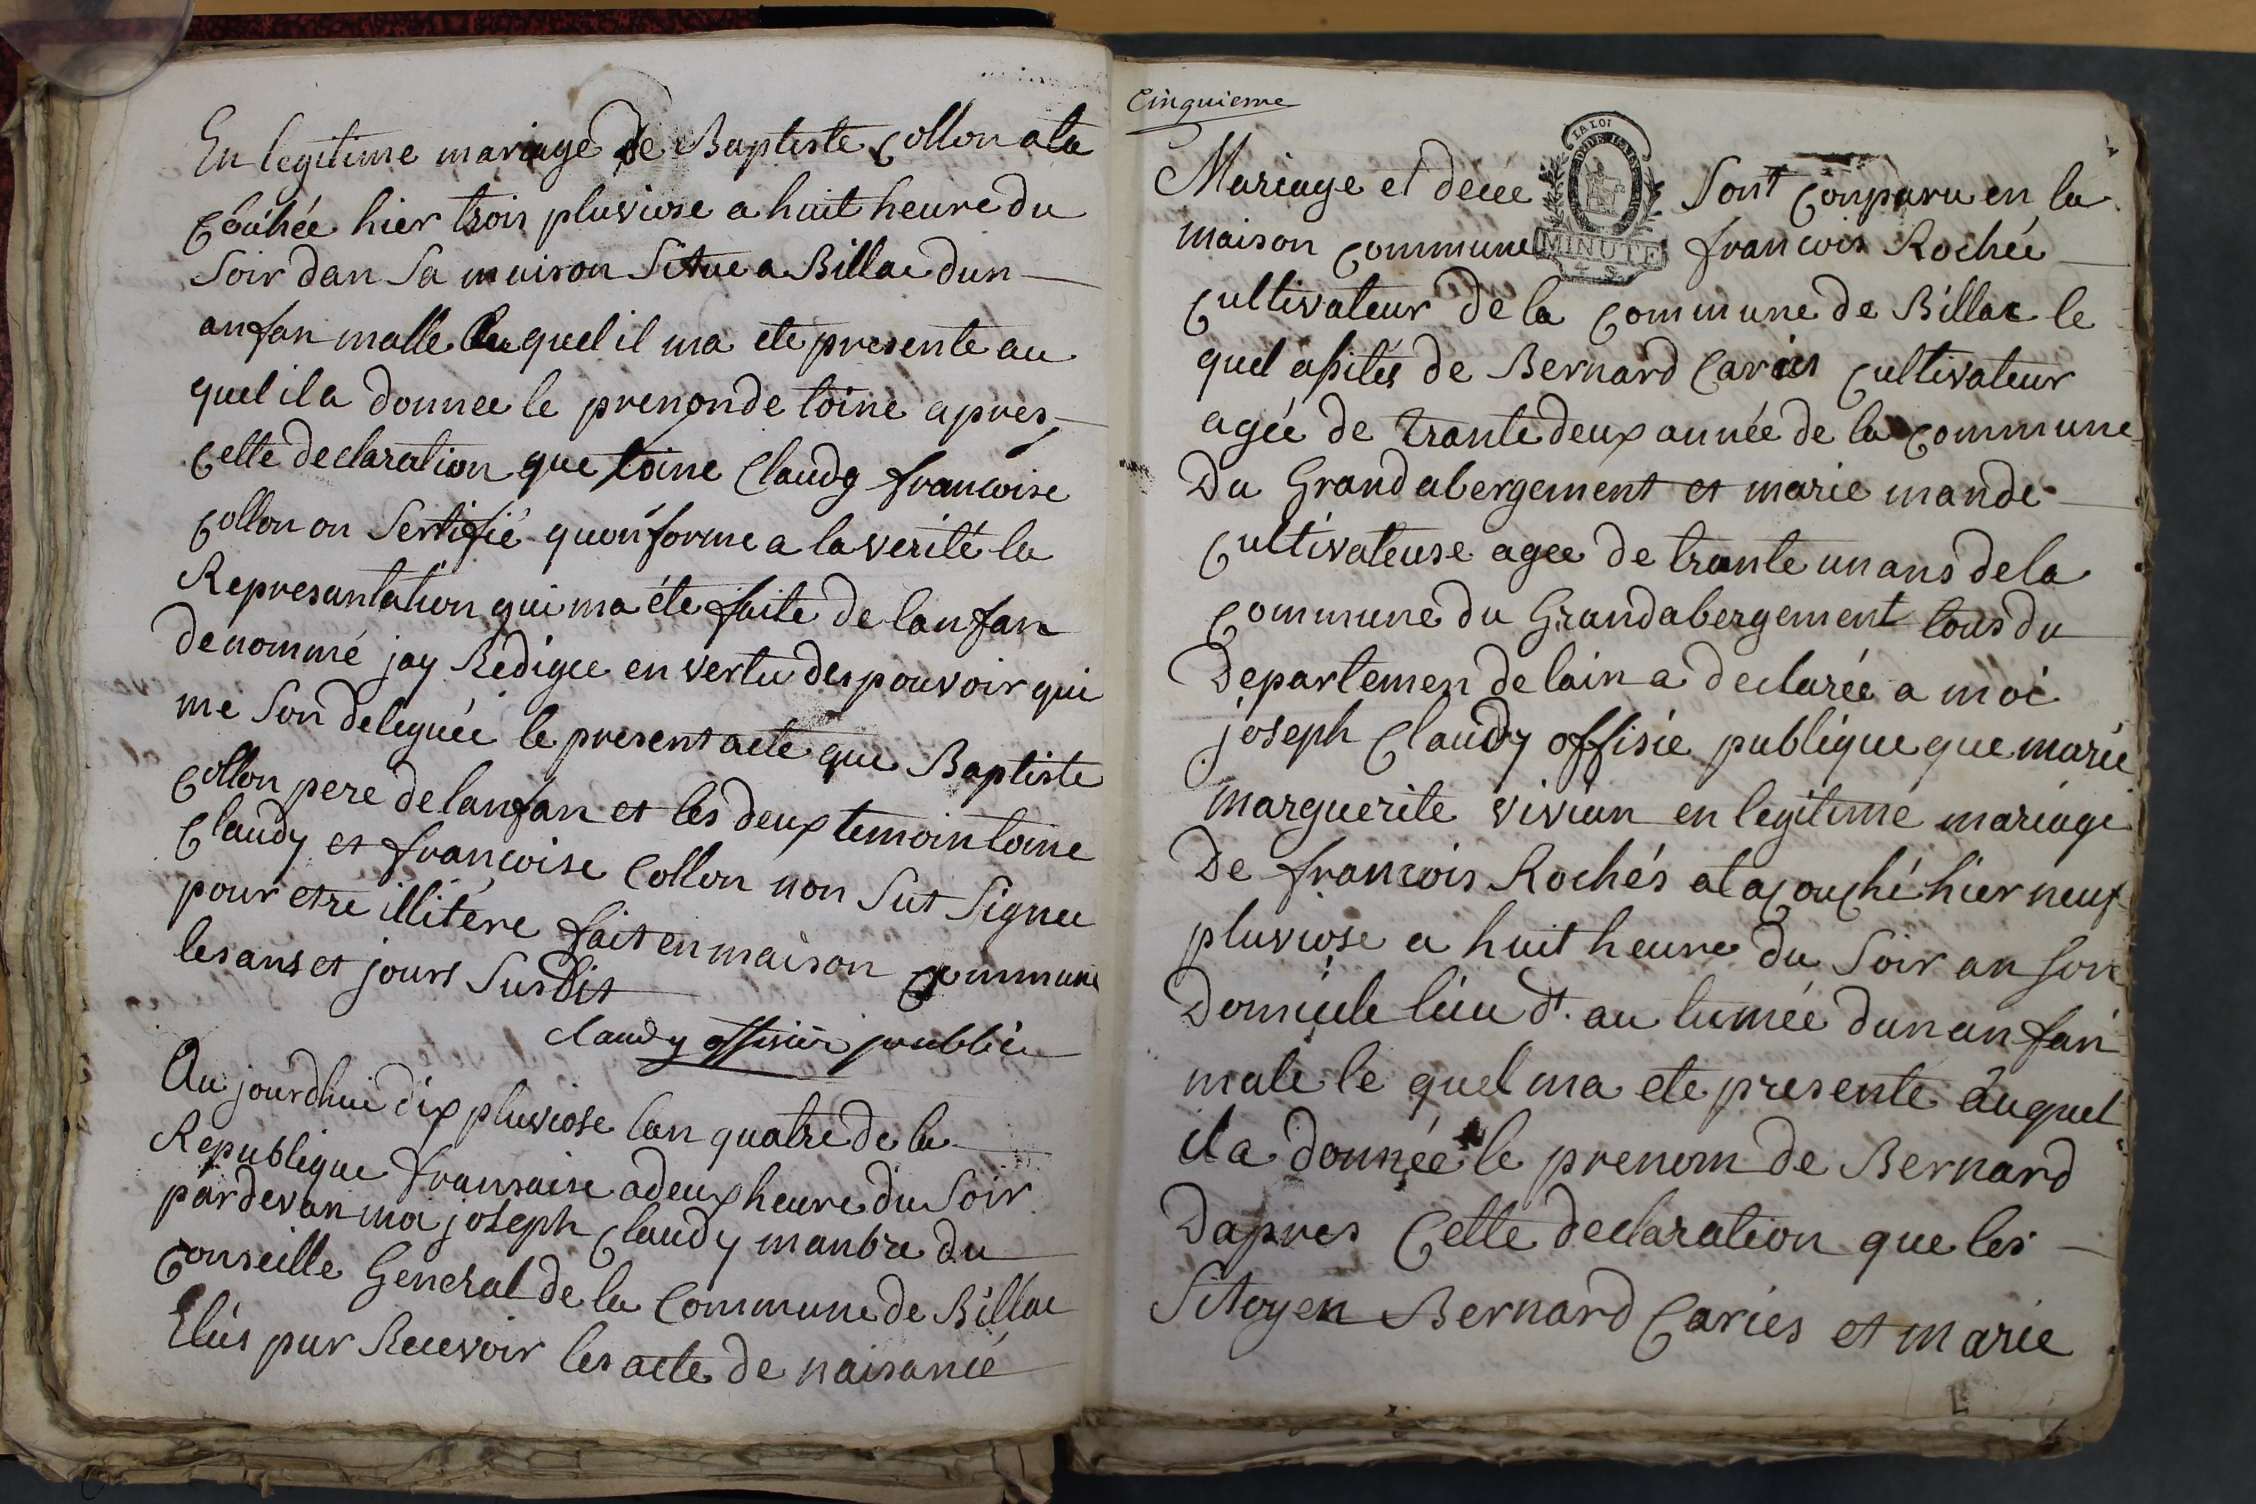 En legitime mariage de Baptiste Collon ala
Couchée hier trois pluviose a huit heure du
Soir dan Sa maison Situe a Billac dun
anfan malle lequel il ma ete presente au
quel il a donnee le prenon de toine apres
Cette declaration que toine Claudy francoise
Collon on Sertifié quonforme a la verité la
Represantation qui ma éte faite de lanfan
denommé jay Redigee en vertu des pouvoir qui
me Son deleguée le present acte que Baptiste
Collon pere de lanfan et les deux temoin toine
Claudy et francoise Collon non Sut Signee
pour etre illitére fait en maison Commune
les ans et jours Susdit
Claudy offisier public
Au jourdhui dix pluviose lan quatre de la
Republique fransaise a deux heure du Soir
pardevan moi joseph Claudy manbre du
Conseille General de la Commune de Billac
Elús pur Recevoir les acte de naisancé
Cinquieme
Mariage et decée Sont Conparu en la
LA LOI
MINUTE
maison Commune francois Rochée
Cultivateur de la Commune de Billac le
quel asités de Bernard Caries Cultivateur
agée de trante deux année de la Commune
Du Grand abergement et marie mande
Cultivateuse agee de trante un ans de la
Commune du Grandabergement tous du
Departemen de lain a declarée a moi
joseph Claudy offisie publique que marie
marguerite vivian en legitime mariage
De francois Rochés ala Couché hier neuf
pluviose a huit heure du Soir an Son
Domicile lieu dt. au lumée dun anfan
male le quel ma ete presente auquel
il a donnée le prenom de Bernard
Dapres Cette declaration que les
Sitoyen Bernard Caries et marie